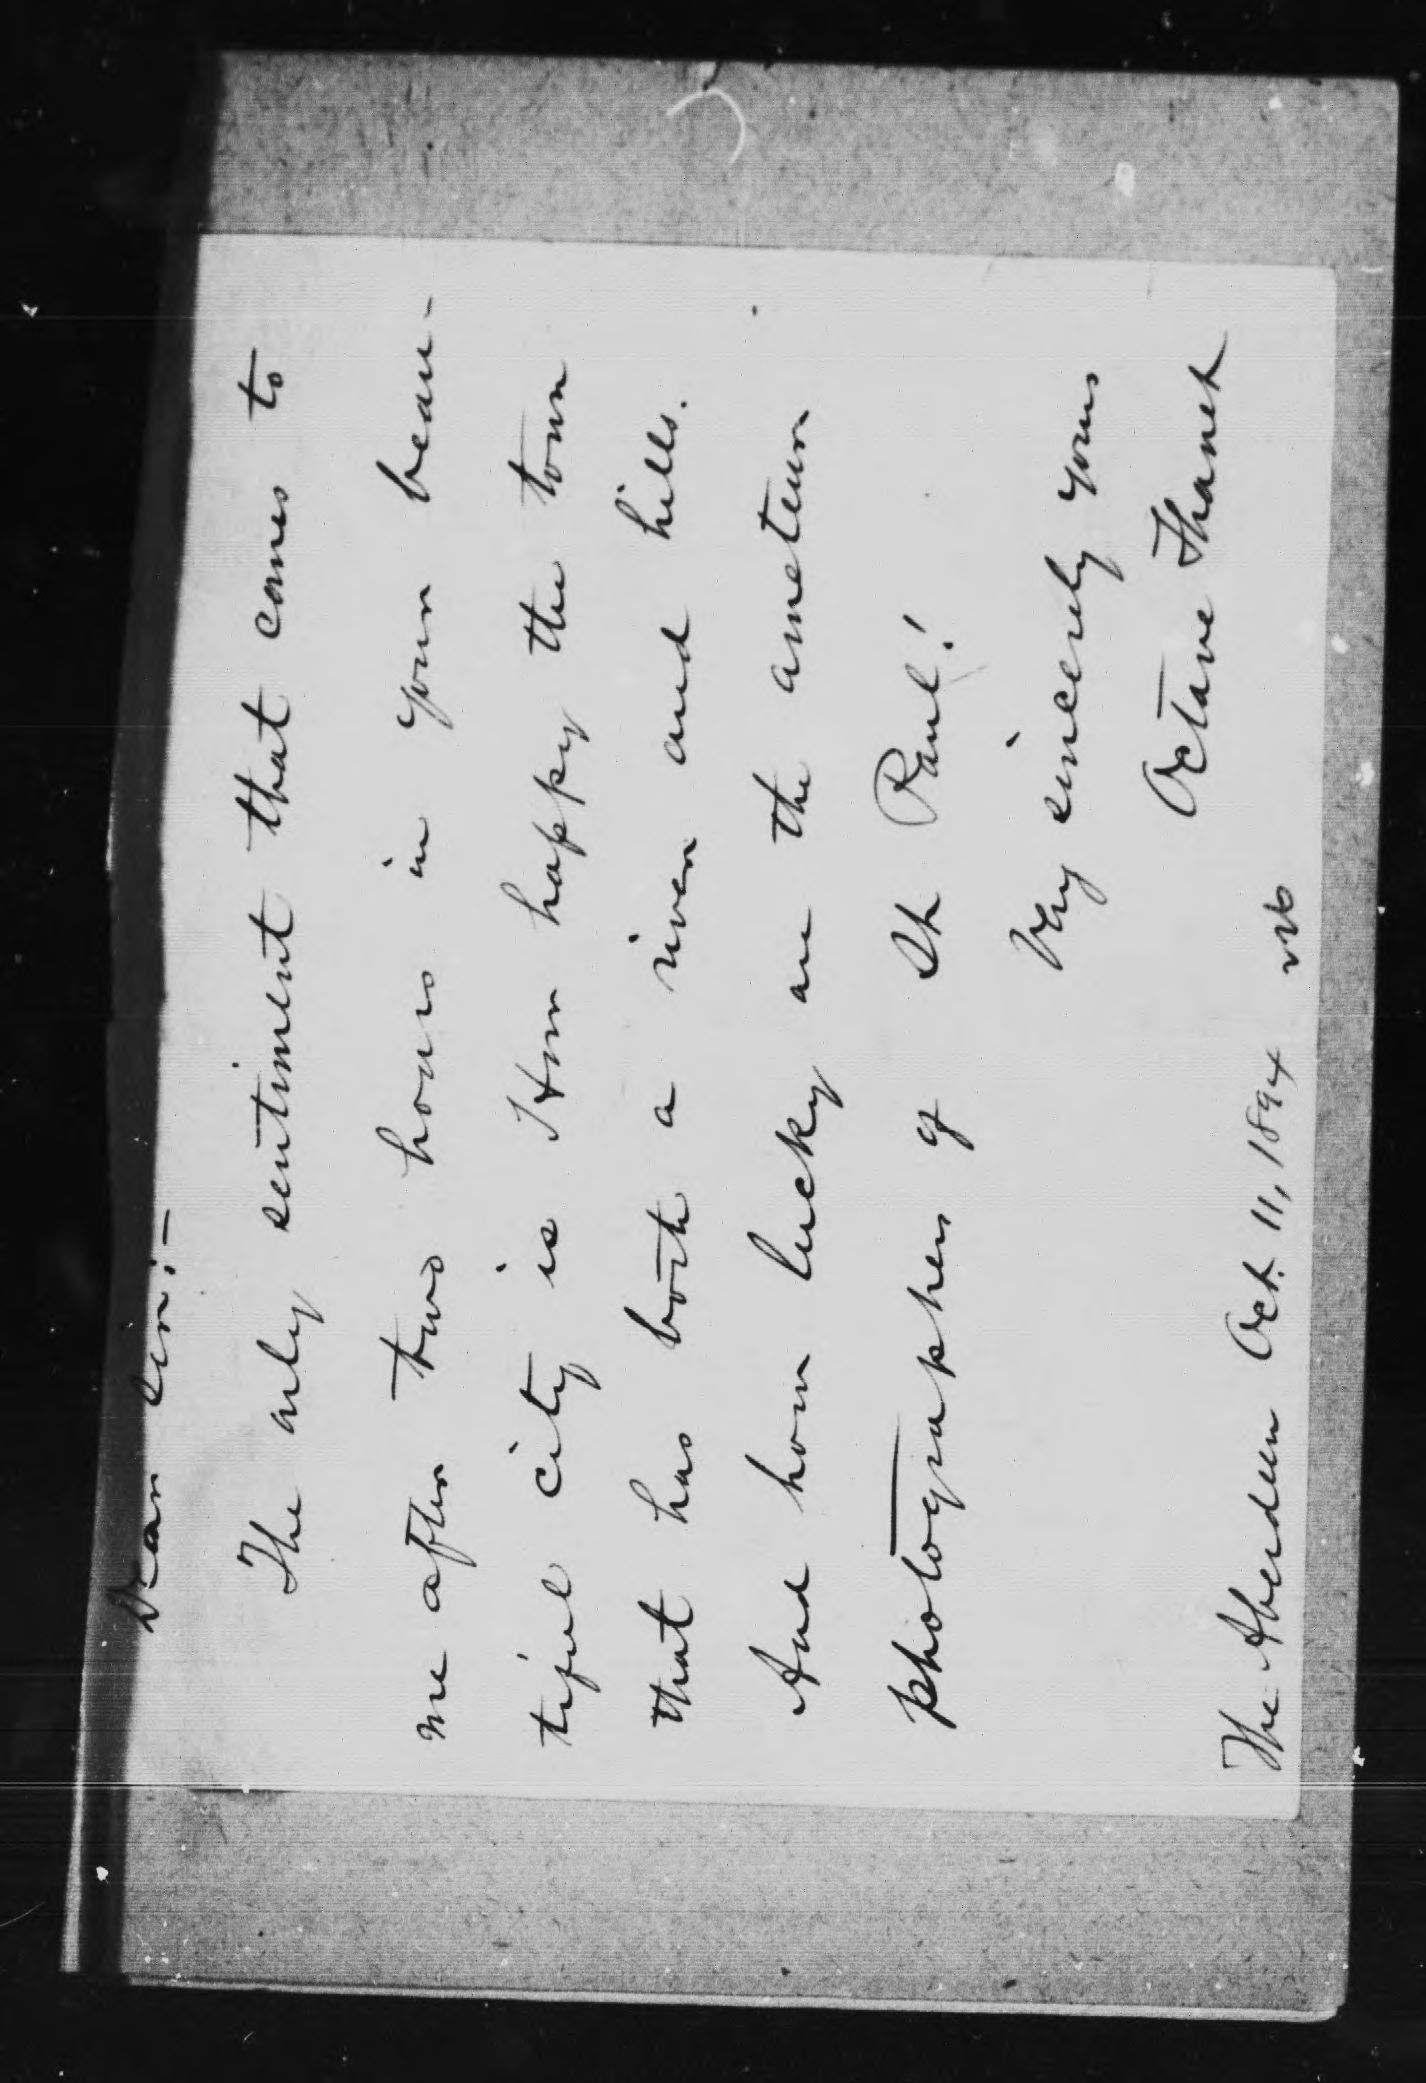 Dear Sir:—
The only sentiment that comes to
me after two hours in your beau-
tiful city is How happy the town
that has both a river and hills.
And how lucky are the ameteur
photographers of St Paul!
Very sincerely yours
Octave Thanet
The Aberdeen Oct. 11, 1894